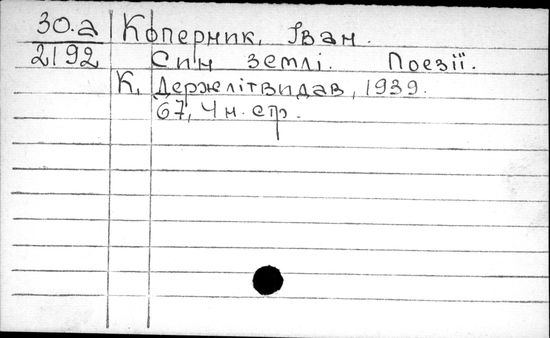 30.а Коперник, Іван.
2192 Син землі. Поезії.
К, Держлітвидав, 1939.
67, 4 н. стр.